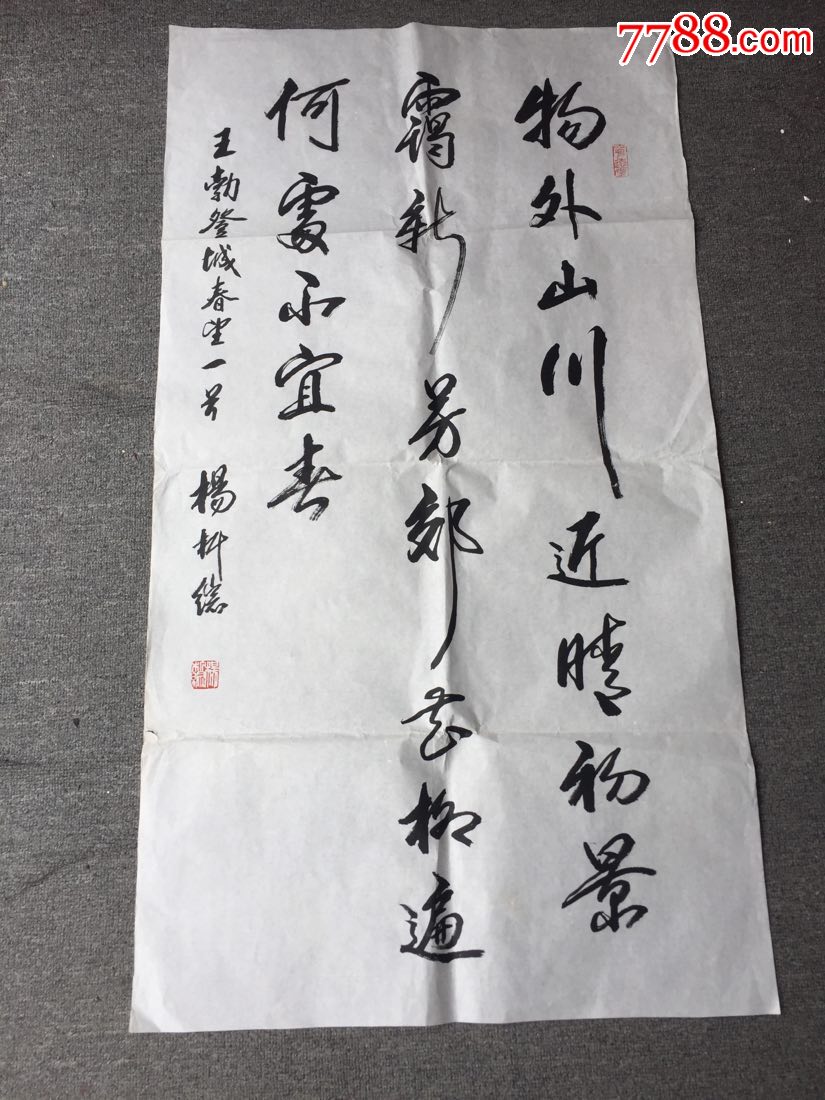 7788.com
物外山川近晴初景
靄新芳郊花柳遍
何處不宜春
王勃登城春望一首
楊科